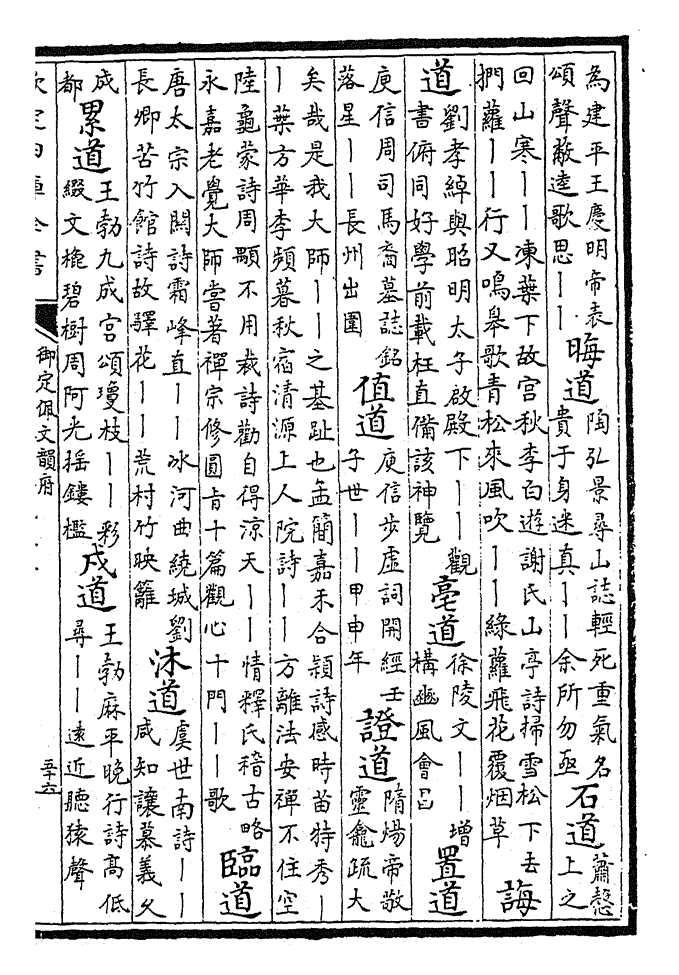 為建平王慶明帝表
頌聲敝逵歌思丨丨
晦道
陶弘景尋山誌輕死重氣名
貴于身迷真丨丨余所勿亟
石道
蕭慤
上之
回山寒丨丨凍葉下故宮秋李白遊謝氏山亭詩掃雪松下去
捫蘿丨丨行又鳴皋歌青松來風吹丨丨綠蘿飛花覆烟草
誨
道
劉孝綽與昭明太子啟殿下丨丨觀
書俯同好學前載枉直備該神覽
亳道
徐陵文丨丨增
構豳風會呂
置道
庾信周司馬裔墓誌銘
落星丨丨長州出圍
值道
庾信步虛詞開經壬
子世丨丨甲申年
證道
隋煬帝敬
靈龕疏大
矣哉是我大師丨丨之基趾也孟簡嘉禾合穎詩感時苗特秀丨
丨葉方華李頻暮秋宿清源上人院詩丨丨方離法安禪不住空
陸龜蒙詩周顒不用裁詩勸自得涼天丨丨情釋氏稽古略
永嘉老覺大師嘗著禪宗修圓旨十篇觀心十門丨丨歌
臨道
唐太宗入關詩霜峰直丨丨冰河曲繞城劉
長卿苦竹館詩故驛花丨丨荒村竹映籬
沐道
虞世南詩丨丨
咸知讓慕義久
成
都
累道
王勃九成宮頌瓊枝丨丨彩
綴文榱碧樹周阿光搖鏤檻
戍道
王勃麻平晚行詩高低
尋丨丨遠近聽猿聲
欽定四庫全書
御定佩文韻府
五十六